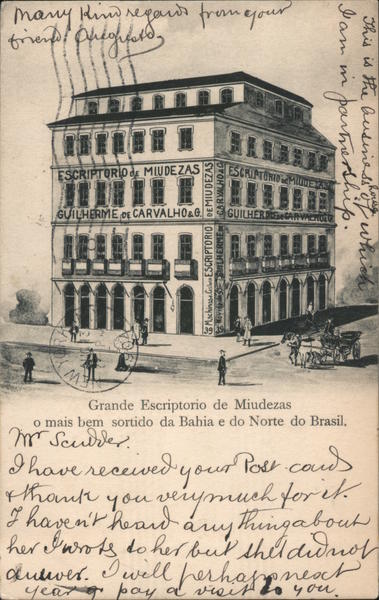 Many kind regards from your
friend Augusto.
This is the business house of which
I am in partnership.
ESCRIPTORIO DE MIUDEZAS
GUILHERME DE CARVALHO & C.
ESCRIPTORIO DE MIUDEZAS
ESCRIPTORIO DE MIUDEZAS
GUILHERME DE CARVALHO & C.
39
39
Grande Escriptorio de Miudezas
o mais bem sortido da Bahia e do Norte do Brasil.
Mr Scudder.
I have received your Post card
& thank you very much for it.
I haven't heard any thing about
her I wrote to her but she did not
answer. I will perhaps next
year pay a visit to you.